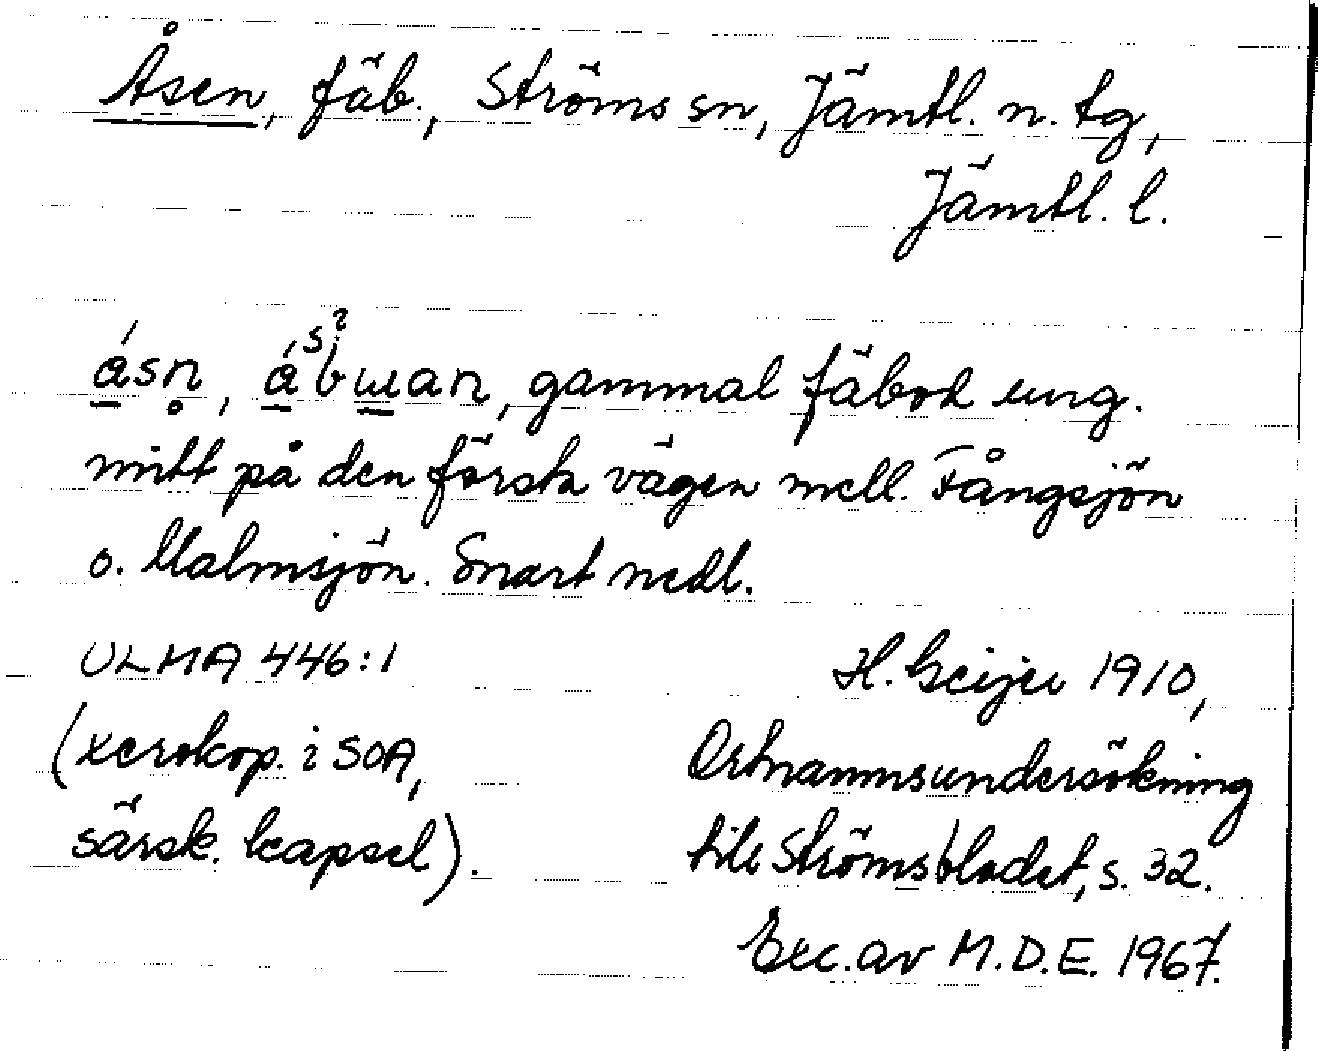 Åsen, fäb., Ströms sn, Jämtl. n. tg,
Jämtl. l.
ásn̥, ábɯan, gammal fäbod ung.
s?
mitt på den första vägen mell. Fångsjön
o. Malmsjön. Snart nedl.
ULMA 446:1
H. Geijer 1910,
(xerokop. i SOA,
Ortnamnsundersökning
särsk. kapsel).
till Strömsbladet, s. 32.
Exc. av M.D.E. 1967.